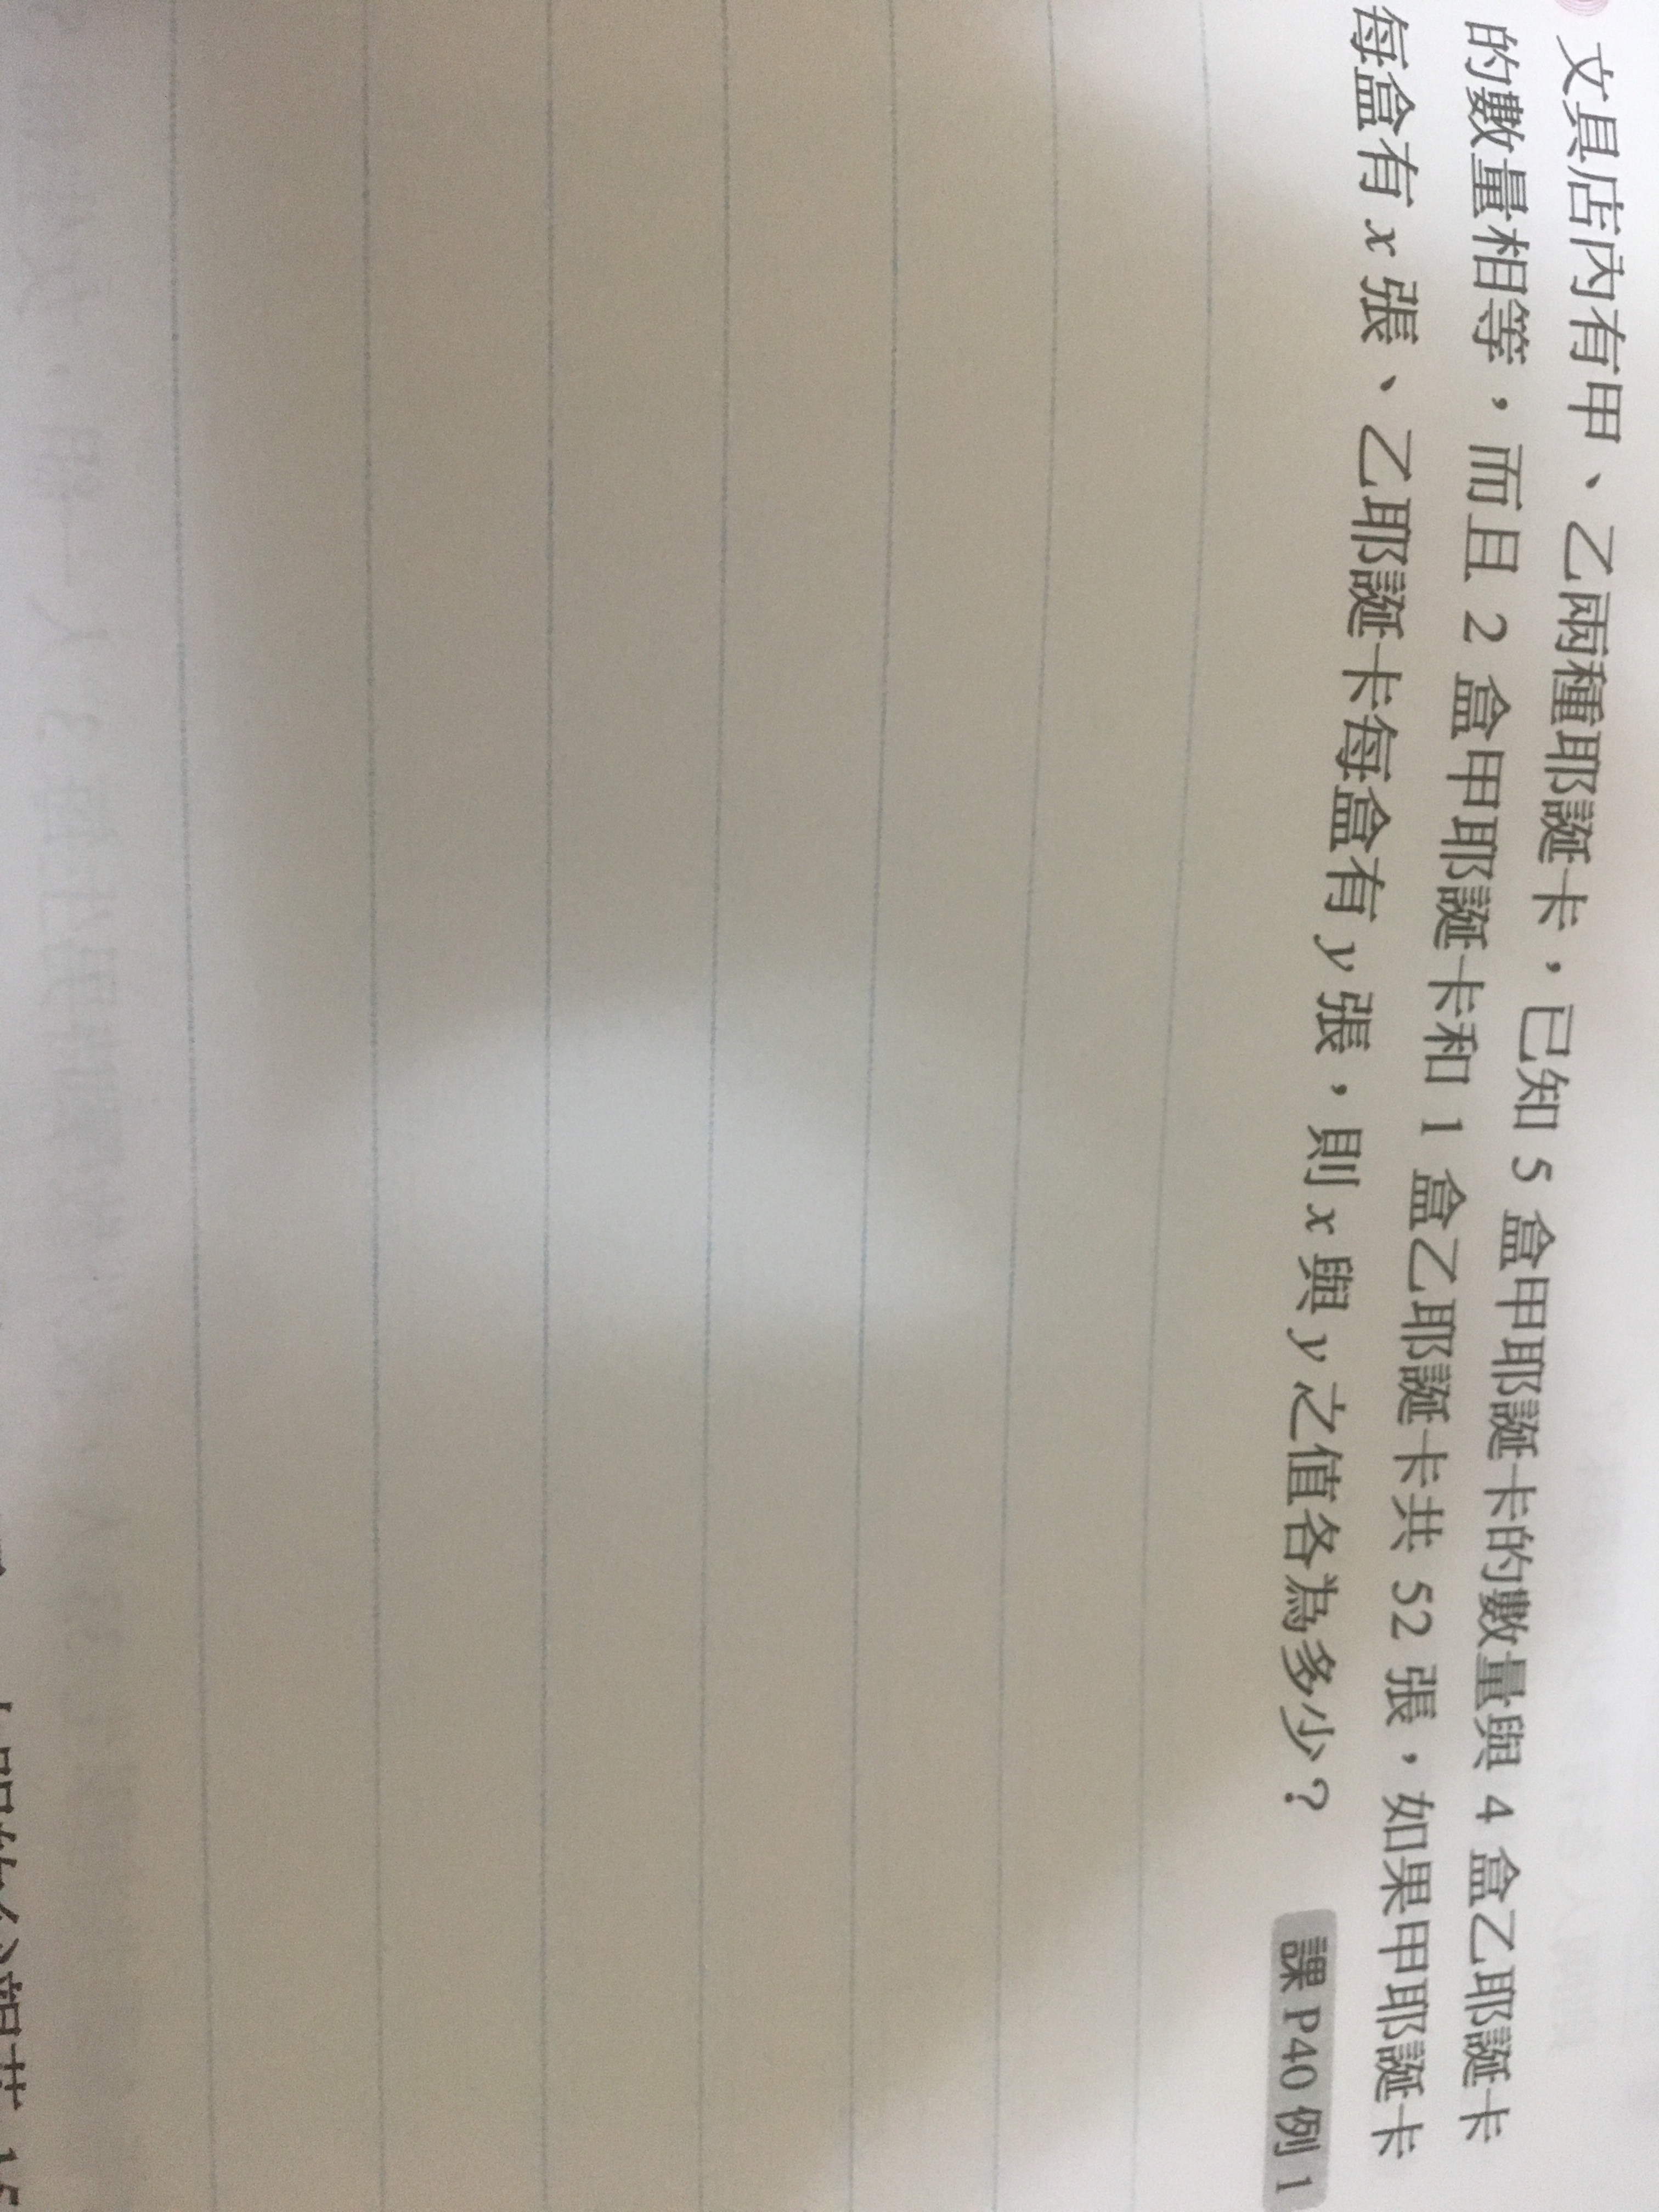 文具店內有甲、乙兩種耶誕卡，已知 5 盒甲耶誕卡的數量與 4 盒乙耶誕卡
的數量相等，而且 2 盒甲耶誕卡和 1 盒乙耶誕卡共 52 張，如果甲耶誕卡
每盒有 x 張、乙耶誕卡每盒有 y 張，則 x 與 y 之值各為多少？ 課 P40 例 1